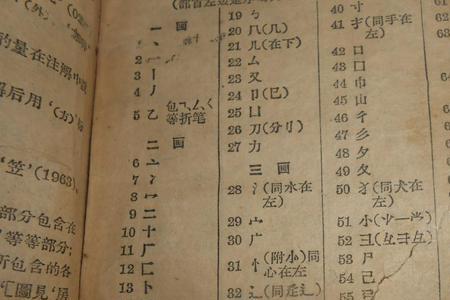 (外)
的量在注解中説
后用‘(方)’
笠’(1963)、
部分包含在
等等部分;
所包含的各
匚圖見‘房
一 画
1 一
2
3 丨
4 丿
5 乙 包乛乙𡿨
等折笔
二 画
6 亠
7 冫
8 冖
9 二
10 十
11 厂
12 匚
13 卜
19 勹
20 几(几)
21 儿(在下)
22 厶
23 又
24 卩(㔾)
25 凵
26 刀(分刂)
27 力
三 画
28 氵(同水在
左)
29 宀
30 广
31 忄(附㣺)同
心在左
32 辶(同辵辶)
40 寸
41 扌(同手在
左)
42 口
43 囗
44 巾
45 山
46 彳
47 彡
48 夕
49 夂
50 犭(同犬在
左)
51 小(⺌⺍)
52 彐(彑彐)
53 尸
54 己
55 己
61
62
63